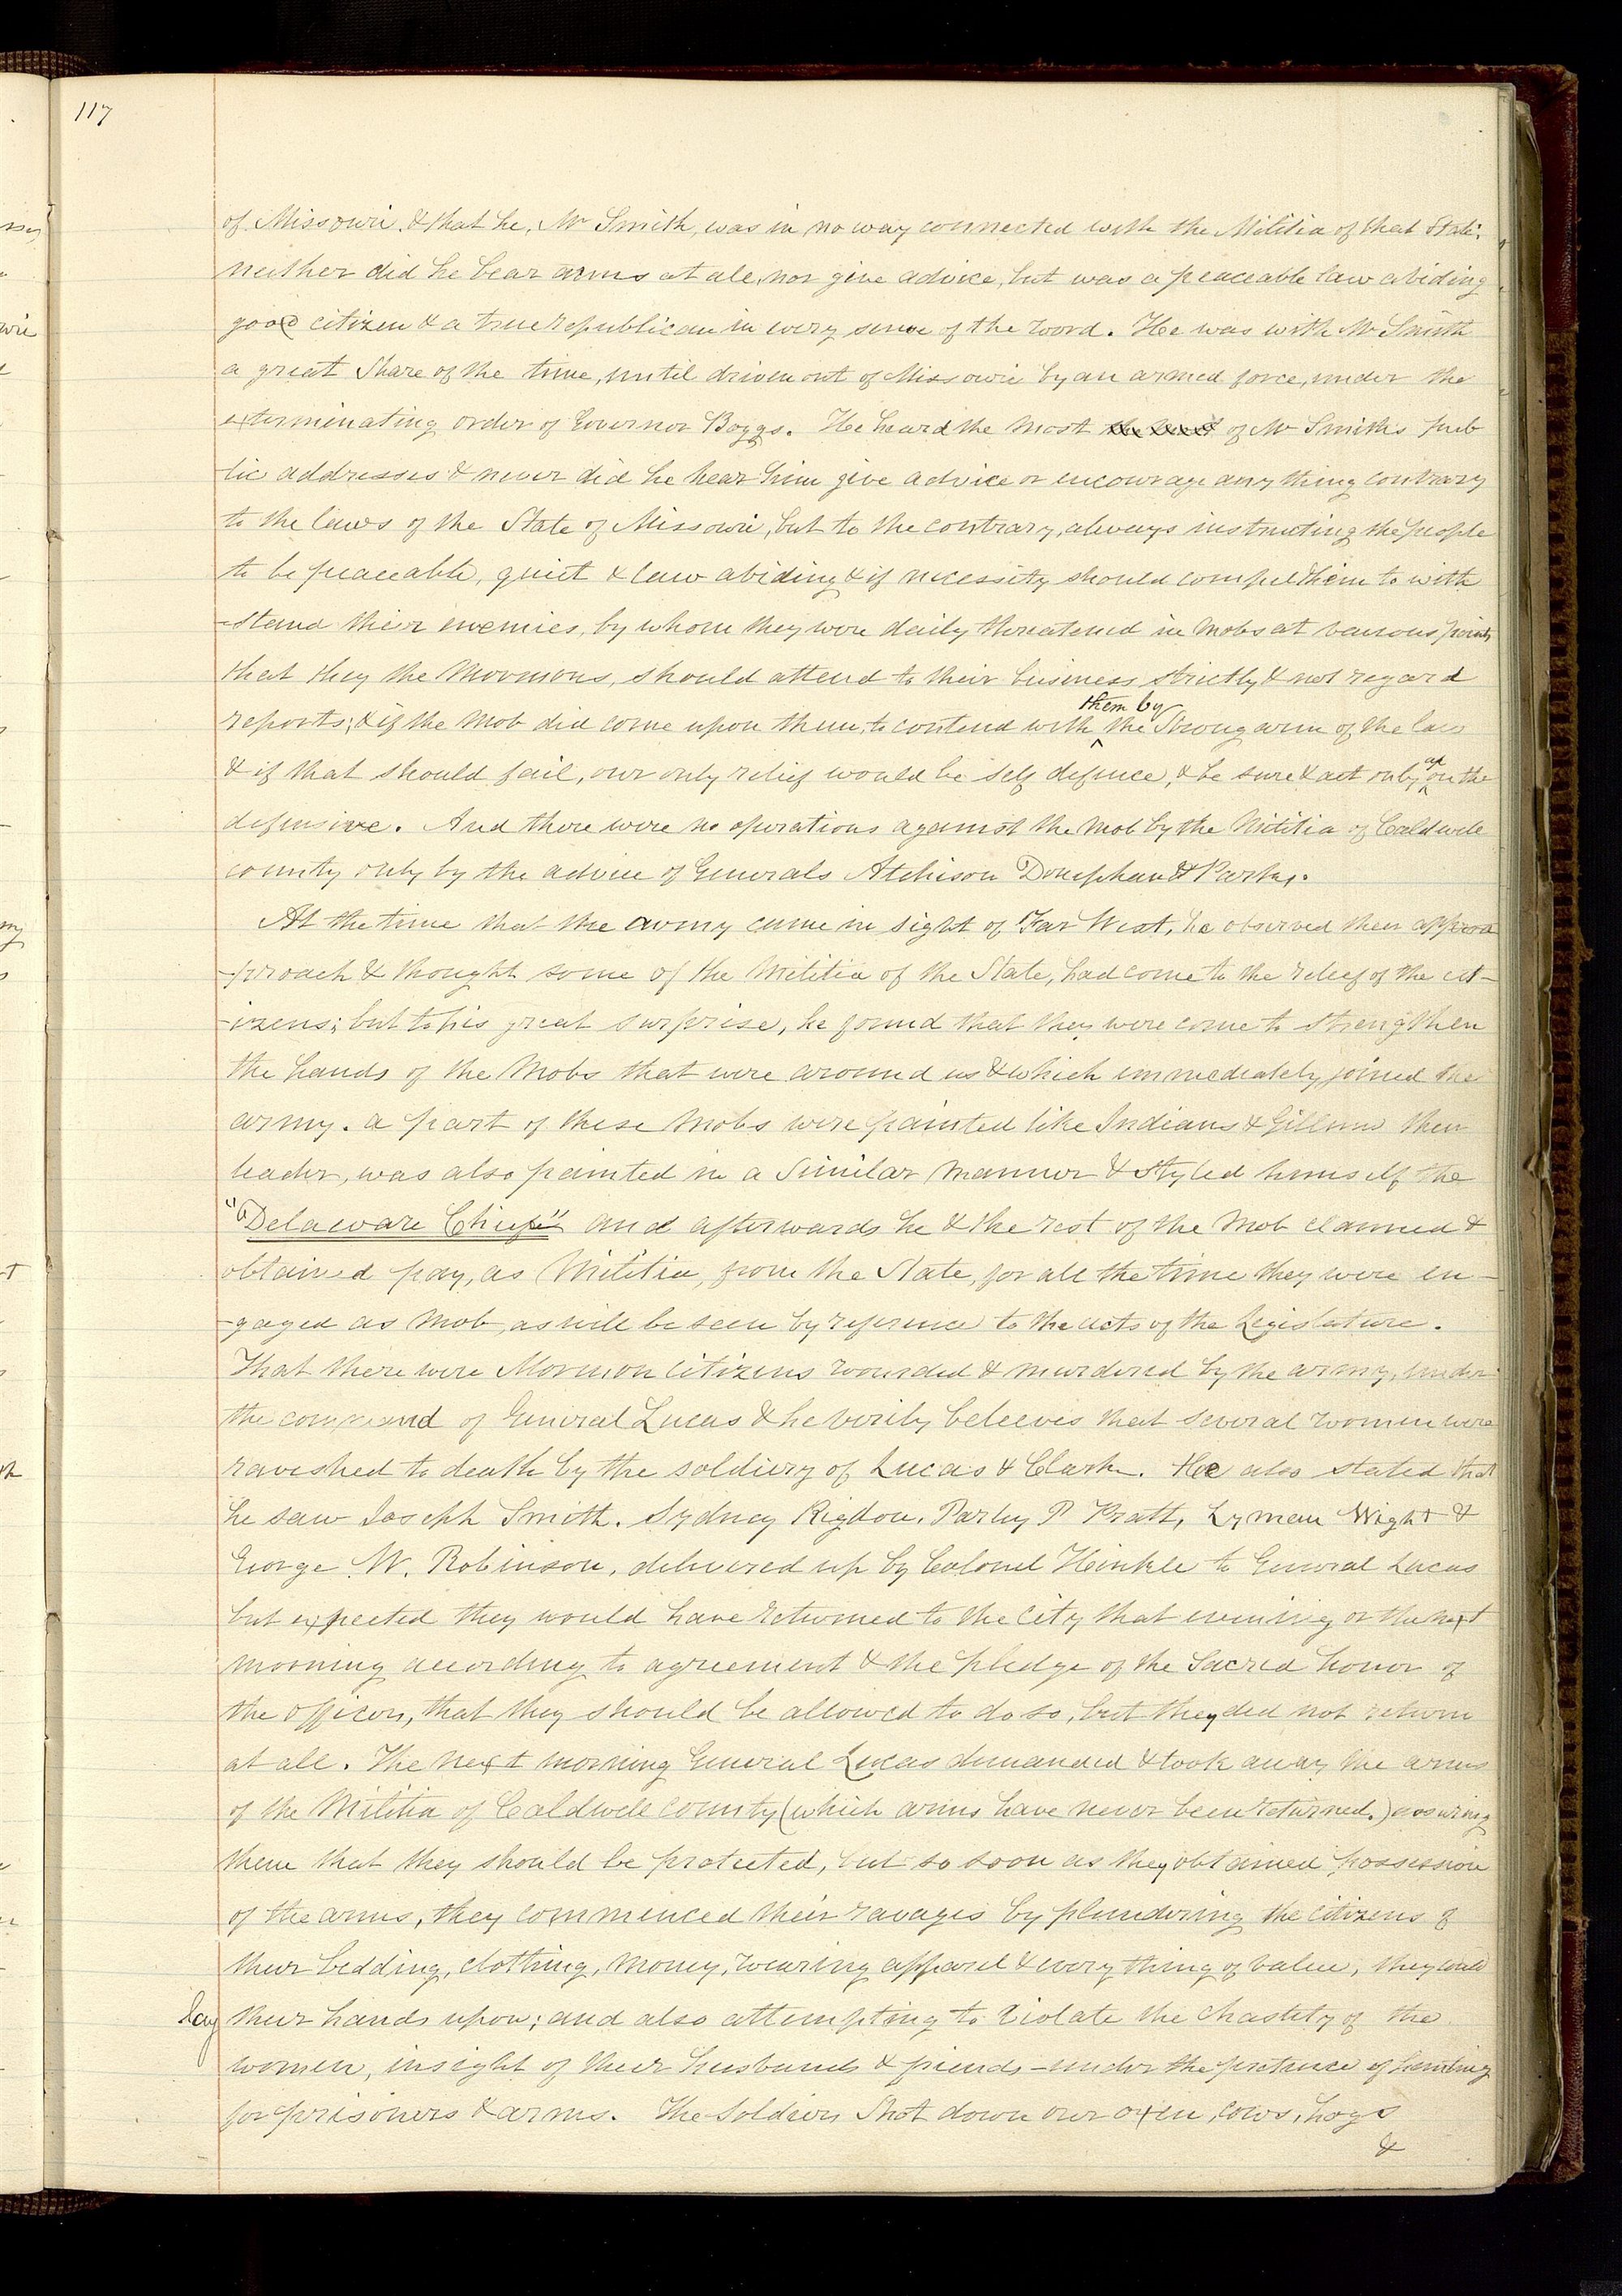 117
of Missouri. & that he, Mr Smith, was in no way connected with the Militia of that State,
neither did he bear arms at all, nor give advice, but was a peaceable law abiding
good citizen & a true republican in every sense of the word. He was with Mr Smith
a great share of the time, until driven out of Missouri by an armed force, under the
exterminating order of Governor Boggs. He heard the most of Mr Smith's pub
lic addresses & never did he hear him give advice or encourage any thing contrary
to the laws of the State of Missouri, but to the contrary, always instructing the people
to be peaceable, quiet & law abiding & if necessity should compel them to with
-stand their enemies, by whom they were daily threatened in mobs at various points
that they the Mormons, should attend to their business strictly & not regard
reports; & if the mob did come upon them, to contend with them by the strong arm of the law
& if that should fail, our only relief would be self defence, & be sure & act only on the
defensive. And there were no operations against the mob by the Militia of Caldwell
county only by the advice of Generals Atchison Doniphan & Parks.
At the time that the army came in sight of Far West, he observed their approa
-proach & thought some of the Militia of the State, had come to the relief of the cit-
-izens; but to his great surprise, he found that they were come to strengthen
the hands of the mobs that were around us & which immediately joined the
army. a part of these mobs were painted like Indians & Gillum their
leader, was also painted in a similar manner & styled himself the
"Delaware Chief" and afterwards he & the rest of the mob claimed &
obtained pay, as Militia, from the State, for all the time they were en-
-gaged as mob, as will be seen by reference to the acts of the Legislature.
That there were Mormon citizens wounded & murdered by the army, under
the command of General Lucas & he verily beleeves that several women were
raveshed to death by the soldiery of Lucas & Clark. He also stated that
he saw Joseph Smith. Sydney Rigdon. Parley P Pratt, Lyman Wight &
George W. Robinson, delivered up by Colonel Hinkle to General Lucas
but expected they would have returned to the city that evening or the next
morning according to agreement & the pledge of the sacred honor of
the officers, that they should be allowed to do so, but they did not return
at all. The next morning General Lucas demanded & took away the arms
of the Militia of Caldwell county (which arms have never been returned.) assuring
them that they should be protected, but so soon as they obtained possession
of the arms, they commenced their ravages by plundering the citizens of
their bedding, clothing, money, wearing apparel & every thing of value, they could
lay their hands upon; and also attempting to violate the chastity of the
women, insight of their husbands & friends - under the pretence of hunting
for prisoners & arms. The soldiers shot down our oxen, cows, hogs
&